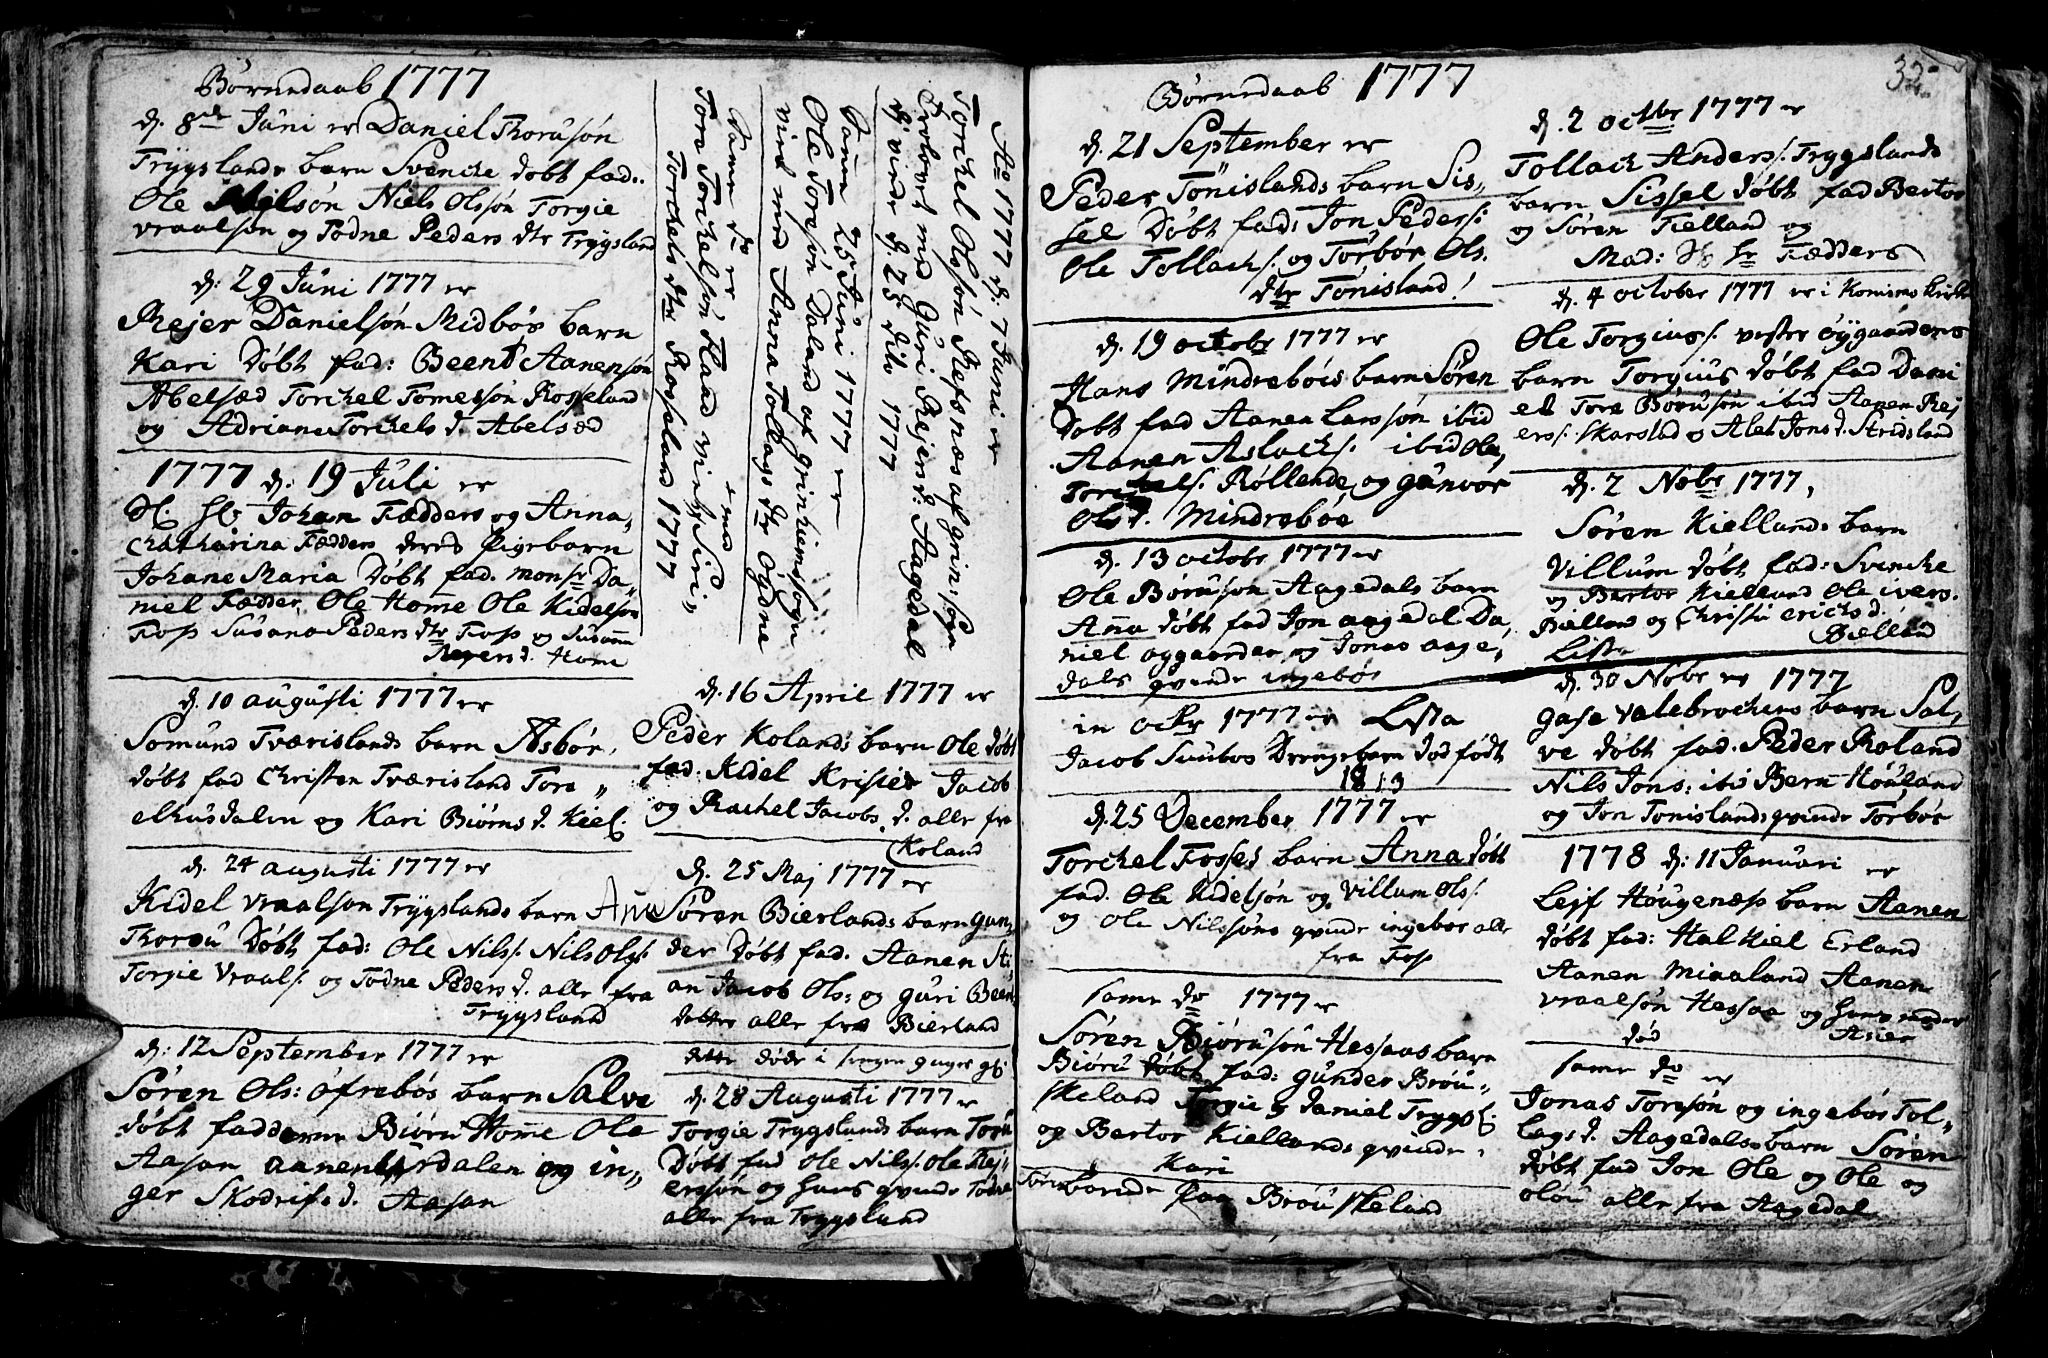 Børnedaab 1777
d. 8de Juni er Daniel Thorusøn
Trygslands barn Svencke døbt fad:
Ole Nilsøn Niels Olsøn Torgie
vraalsøn og Todne Peders dtr Trygsland
d: 29 Juni 1777 er
Rejer Danielsøn Midbøs barn
Kari døbt fad: Beent Aanensøn
Abelsæd Torchel Tomessøn Rosseland
og Adriane Torchels d. Abelsæd
1777 d: 19 Juli er
Johan Fædders og Anna
Chatharina Fædders deres Pigebarn
Johane Maria døbt fad. monsr Da-
niel Fædder, Ole Home Ole Kidelsøn
Foss Susana Peders dtr Foss og Susanne
Rejers d. Home
d. 10 augusti 1777 er
Somund Tværislands barn Asbør,
døbt fad Christen Tværisland Tore
elhusdalen og Kari Biørns d. Kiel.
d. 24 augusti 1777 er
Kidel vraalson Trygslands barn Anne
Thoruu døbt fad: Ole Nils: Nils Ols:
Torgie Vraals: og Todne Peders d. alle fra
Trygsland
d: 12 September 1777 er
Søren Ols: øfrebøs barn Salve
døbt fadderne Biøru Home Ole
Aasan aanen dalen og in-
ger Skodrifs d. Aasan
Ao 1777 d. 7 Juni er
Torchel Olssøn Refsnæs af grin: sogn
Trolovet med Guri Rejers d: Aagedal
d. viede d. 25 dito 1777
Same 25 Juni 1777 er
Ole Toresøn Daland af grinheims sogn
vied med Anna Tollags dtr øydne
Same do er
Tore Torchelsøn Flaad viet med Siri
Torchels dtr Rossaland 1777
d. 16 April 1777 er
Peder Kolands barn Ole døbt
fad: Kidel Kristie Jacob
og Rachel Jacobs d. alle fra
Koland
d. 25 Maj 1777 er
Søren Bierlands barn Gun-
der døbt fad. Aanen Sti-
an Jacob Ols: og guri Been
datter alle fra Bierland
dette døde i
d. 28 Augusti 1777 er
Torgie Trygslands barn Toru
døbt fad Ole Nils: Ole Rej-
ersøn og hans qvinde Todne
alle fra Trygsland
Børnedaab 1777
d. 21 September er
Peder Tønislands barn Sis-
sel døbt fad: Jon Peders:
Ole Tollachs: og Tørbør Ols.
dtr Tønisland!
d. 19 octobr 1777 er
Hans Mindrebøes barn Søren
døbt fad Aanen Larssøn ibid
Aanen Aslachs: ibid Ole,
Torchels: Røllend og gunvor
Ols d. Mindrebøe
d. 13 octobr 1777 er
Ole Børuson Aagedals barn
Anna døbt fad Jon aagedal Da-
niel øygaarden og Jonas aage,
dals qvinde ingebør
in octbr 1777 er Lista
Jacob Suubos Drengebarn dødfødt
1813
d. 25 December 1777 er
Torchel Fosses barn Anna døbt
fad. Ole Kidelsøn og Villum Ols:
og Ole Nilssøns qvinde ingebor alle
fra Foss
same do 1777 er
Søren Biørusøn Hessaas barn
Biøru døbt fad: gunder Brøu-
skeland Torgie og Daniel Trygsl:
og Bertor Kiellands qvinde
Kari
Paa Brøuskeland
32
d. 2 octbr 1777 er
Tollach Anders: Trygslands
barn Sissel døbt fad Bertor
og Søren Kielland og
Mad: Fædders
d. 4 october 1777 er i Konismo kirke
Ole Torgius: vester øygaardens
barn Torgius døbt fad Dani
el Tore Børusøn ibid Aanen Rej
ers: Skarstad og Alet Jons d. Stridsland
d. 2 Nobr 1777,
Søren Kiellands barn
Villum døbt fad: Svencke
og Bertor Kielland Ole ivers.
Bielland og Christi erichs d.
Bielland
Lista
d. 30 Nobr er 1777
gase valebrochens barn Sal-
ve døbt fad. Peder Roland
Nils Jons: ibi Bern Høuland
og Jon Tonislands qvinde Torbør
1778 d: 11 Januari er
Lejf Høugenæss barn Aanen
døbt fad: Halkiel Erland
Aanen Miaaland Aanen
vraalsøn Hessaa og hans moder
Asier
død
same do er
Jonas Toresøn og ingebør Tol-
lags d. Aagedals barn Søren
døbt fad Jon Ole og Ole og
oløu alle fra Aagedal